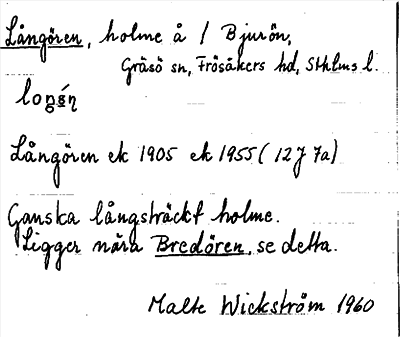 Långören, holme å / Bjurön,
Gräsö sn, Frösåkers hd, Sthlms l.
Långören ek 1905 ek 1955 (12J 7a)
Ganska långsträckt holme.
Ligger nära Bredören, se detta.
Malte Wickström 1960